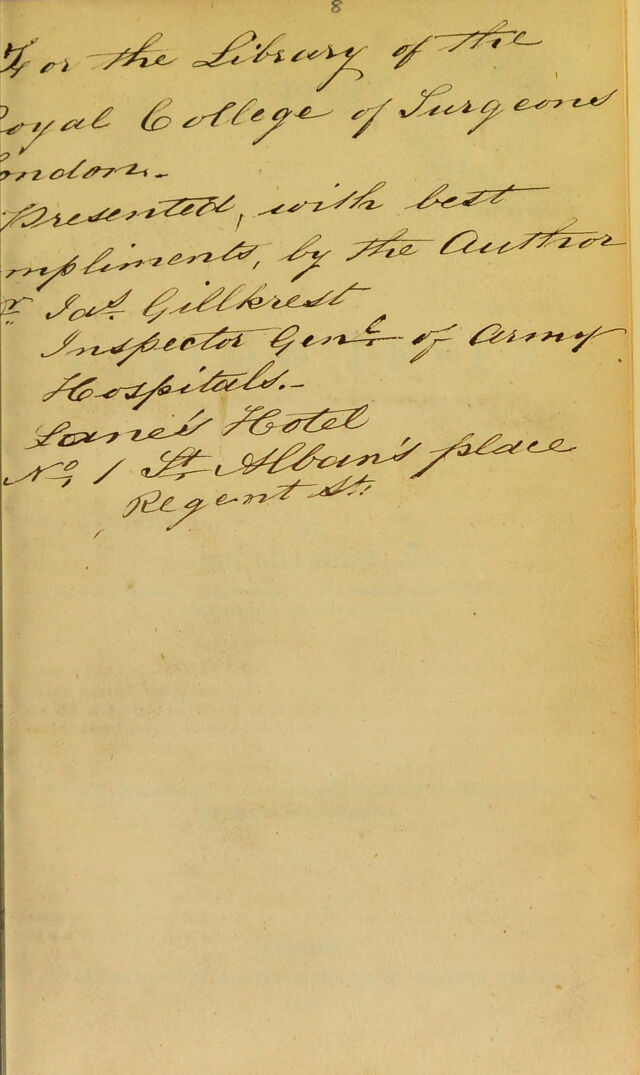 8
For the Library of the
oyal College of Surgeons
ondon.-
Presented, with best
mpliments, by the Author
r Jas. Gillkrest
Inspector Genl. of Army
Hospitals.-
Lane's Hotel
No. 1 St. Alban's place
Regent St.